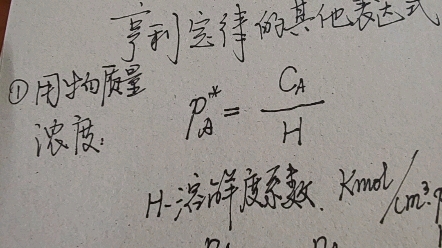 亨利定律的其他表达式
①用物质量
浓度:
p*A = CA/H
H-溶解度系数. Kmol/cm³.